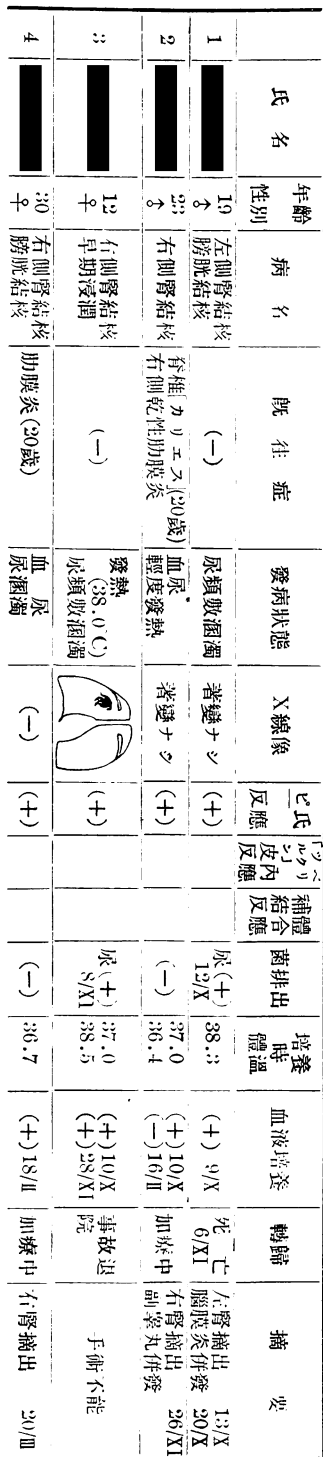 氏名
年齡性別
病名
既往症
發病狀態
X線像
ピ氏反應
「ツベルクリン」皮內反應
補體結合反應
菌排出
培養時體溫
血液培養
轉歸
摘要
1
19 ♂
左側腎結核
膀胱結核
(−)
尿頻數溷濁
著變ナシ
(+)
尿(+)
12/X
38.3
(+) 9/X
死亡
6/XI
左腎摘出 13/X
腦膜炎併發 20/X
2
23 ♂
右側腎結核
脊椎「カリエス」(20歲)
右側乾性肋膜炎
血尿
輕度發熱
著變ナシ
(+)
(−)
37.0
36.4
(+)10/X
(−)16/II
加療中
右腎摘出
副睾丸併發 26/XI
3
12 ♀
右側腎結核
早期浸潤
(−)
發熱
(38.0°C)
尿頻數溷濁
(+)
尿(+)
8/XI
37.0
38.5
(+)10/X
(+)28/XI
事故退院
手術不能
4
30 ♀
右側腎結核
膀胱結核
肋膜炎(20歲)
血尿
尿溷濁
(−)
(+)
(−)
36.7
(+)18/II
加療中
右腎摘出 20/III